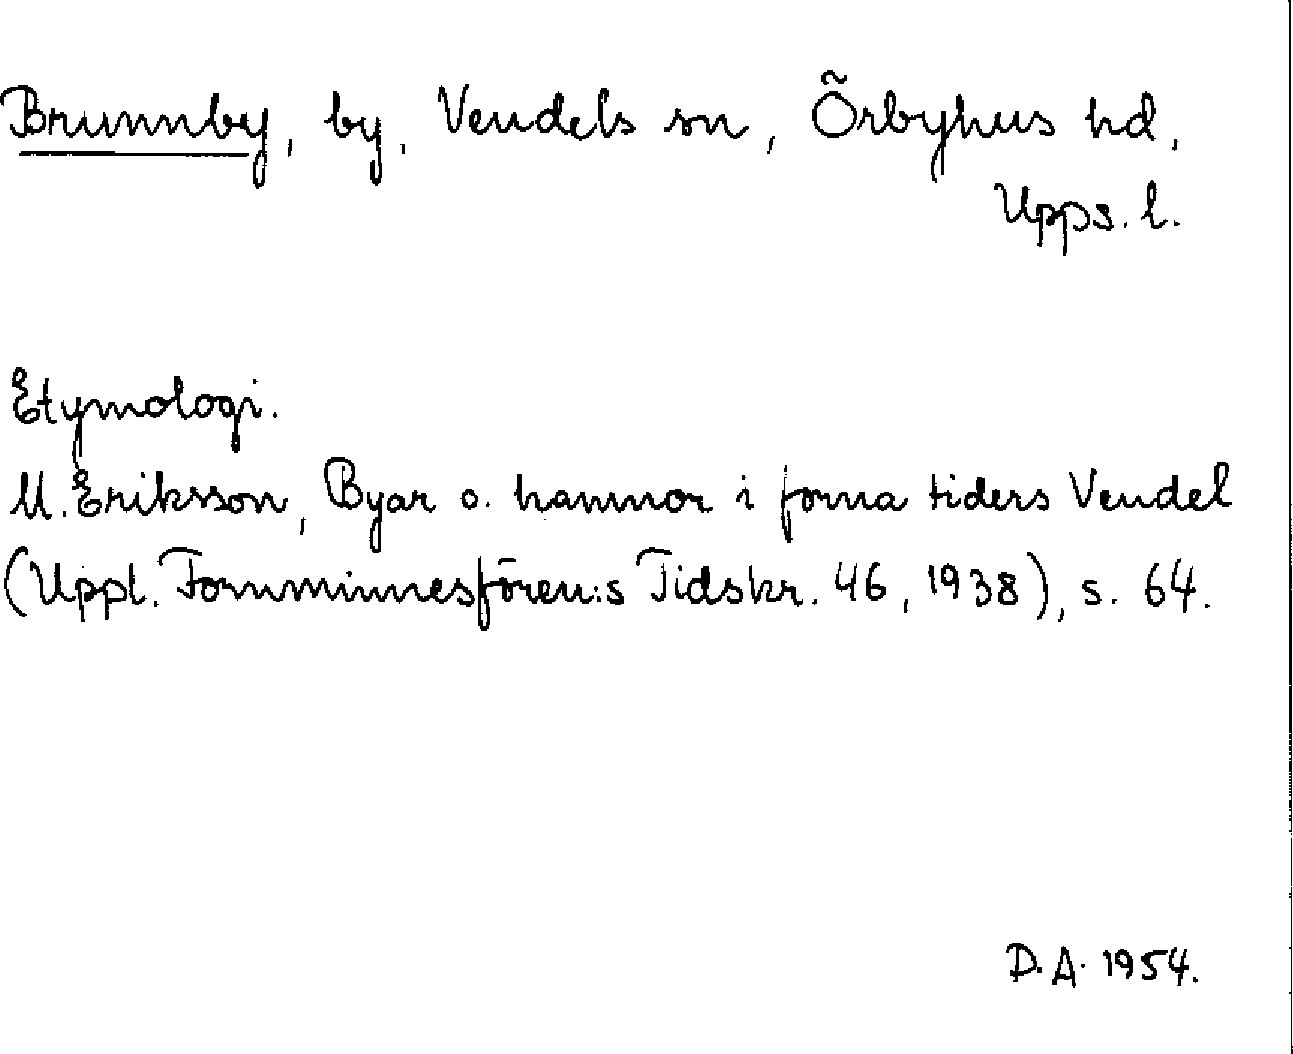 Brunnby, by, Vendels sn, Örbyhus hd,
Upps. l.
Etymologi.
M. Eriksson, Byar o. hamnor i forna tiders Vendel
(Uppl. Fornminnesfören:s Tidskr. 46, 1938), s. 64.
D. A. 1954.